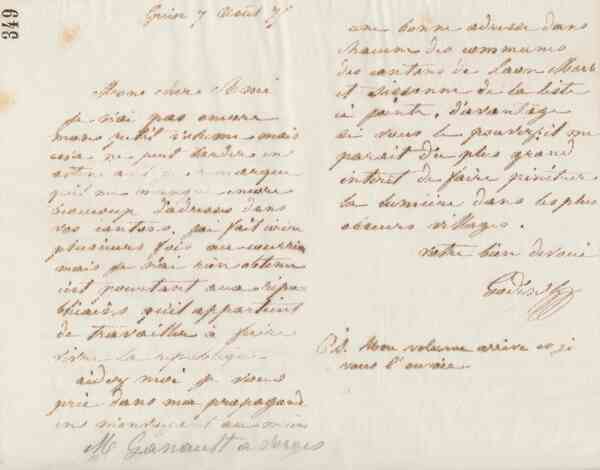 349
Guise 7 Août 7
Mon cher Ami
Je n'ai pas encore
mon volume mais
cela ne peut tarder en
je remarque
qu'il me manque encore
beaucoup d'adresses dans
vos cantons. J'ai fait écrire
plusieurs fois au courrier
mais je n'ai rien obtenu
c'est pourtant aux répu
blicains qu'il appartient
de travailler à faire
vivre la république
aidez moi je vous
prie dans ma propagande
en au moins
Mr Ganault à Vorges
une bonne adresse dans
chacune des communes
des cantons de Laon Marle
et Sissonne de la liste
ci jointe, d'avantage
si vous le pouvez, il me
parait du plus grand
interet de faire pénétrer
la lumière dans les plus
obscurs villages.
votre bien dévoué
Godin
P.S. Mon volume arrive et je
vous l'envoie.